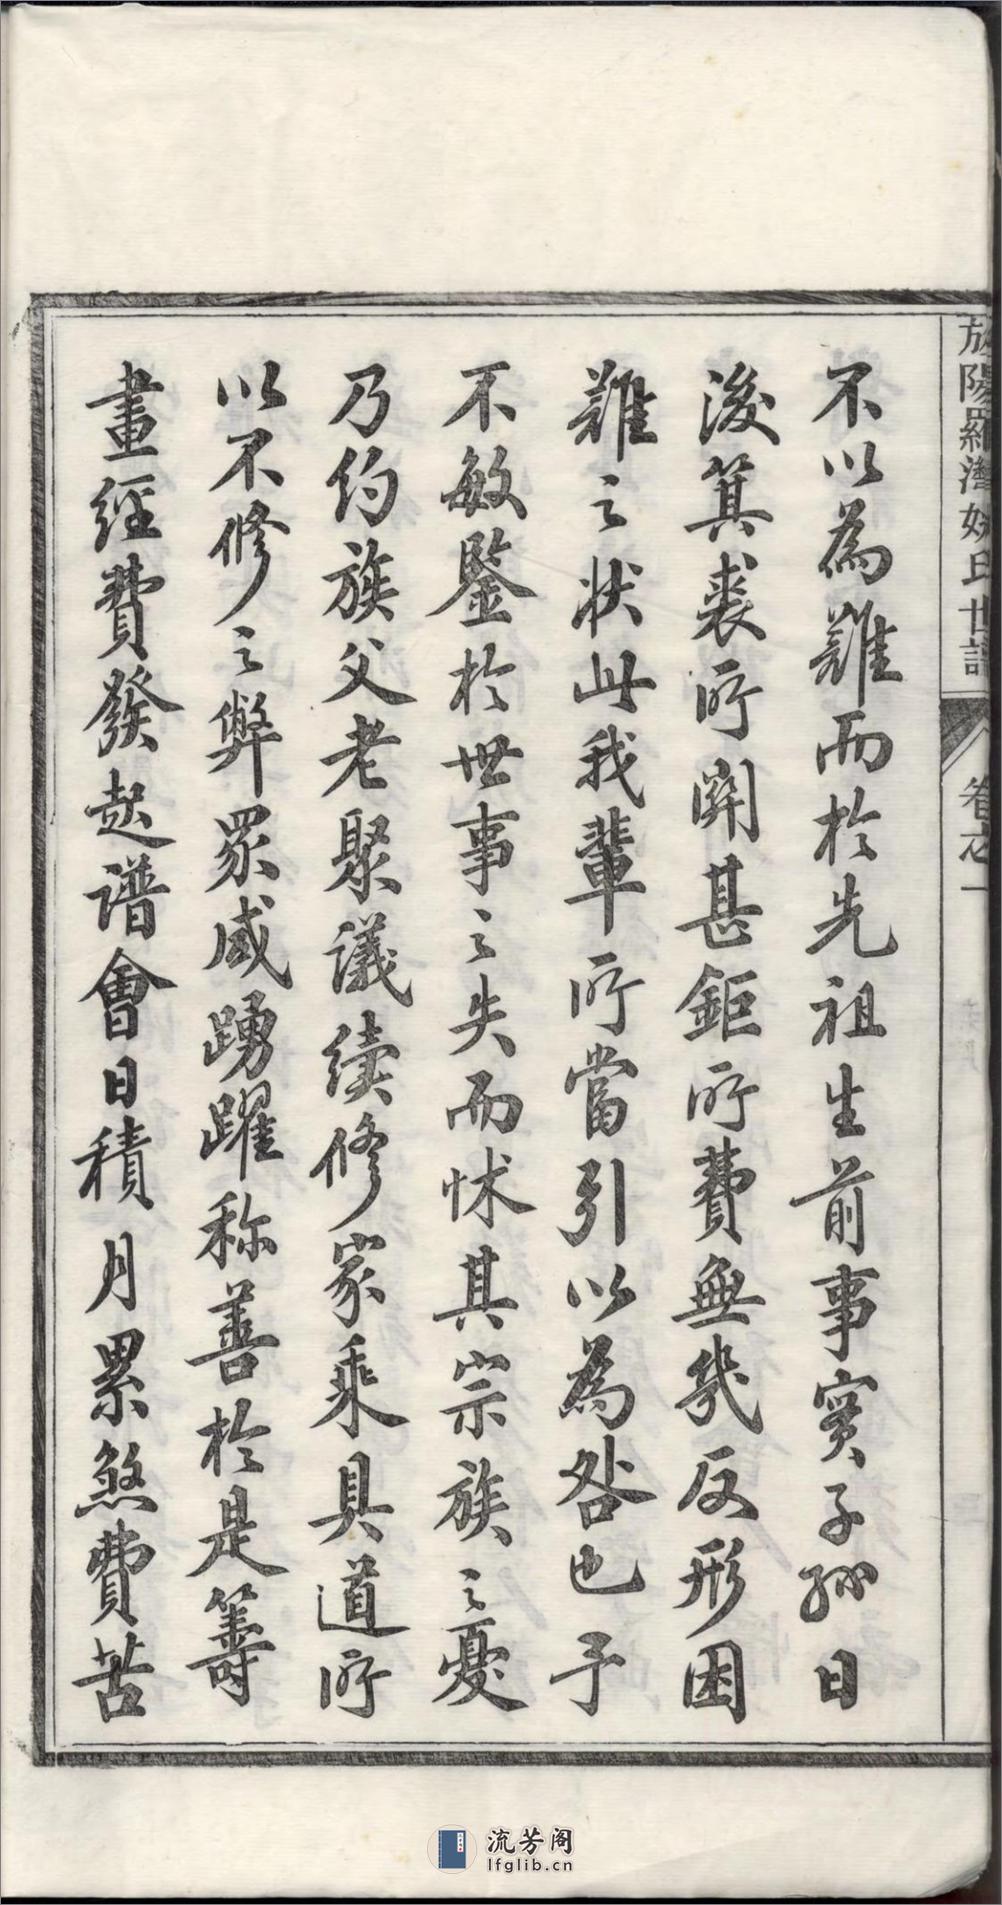 不以為難而於先祖生前事實子孫日
後箕裘所關甚鉅所費無幾反形困
難之狀此我輩所當引以為咎也予
不敏鑒於世事之失而怵其宗族之憂
乃約族父老聚議續修家乘具道所
以不修之弊眾咸踴躍称善於是籌
畫經費發起譜會日積月累煞費苦
陽羅灣姚氏世譜
卷之一
流芳阁
lfglib.cn